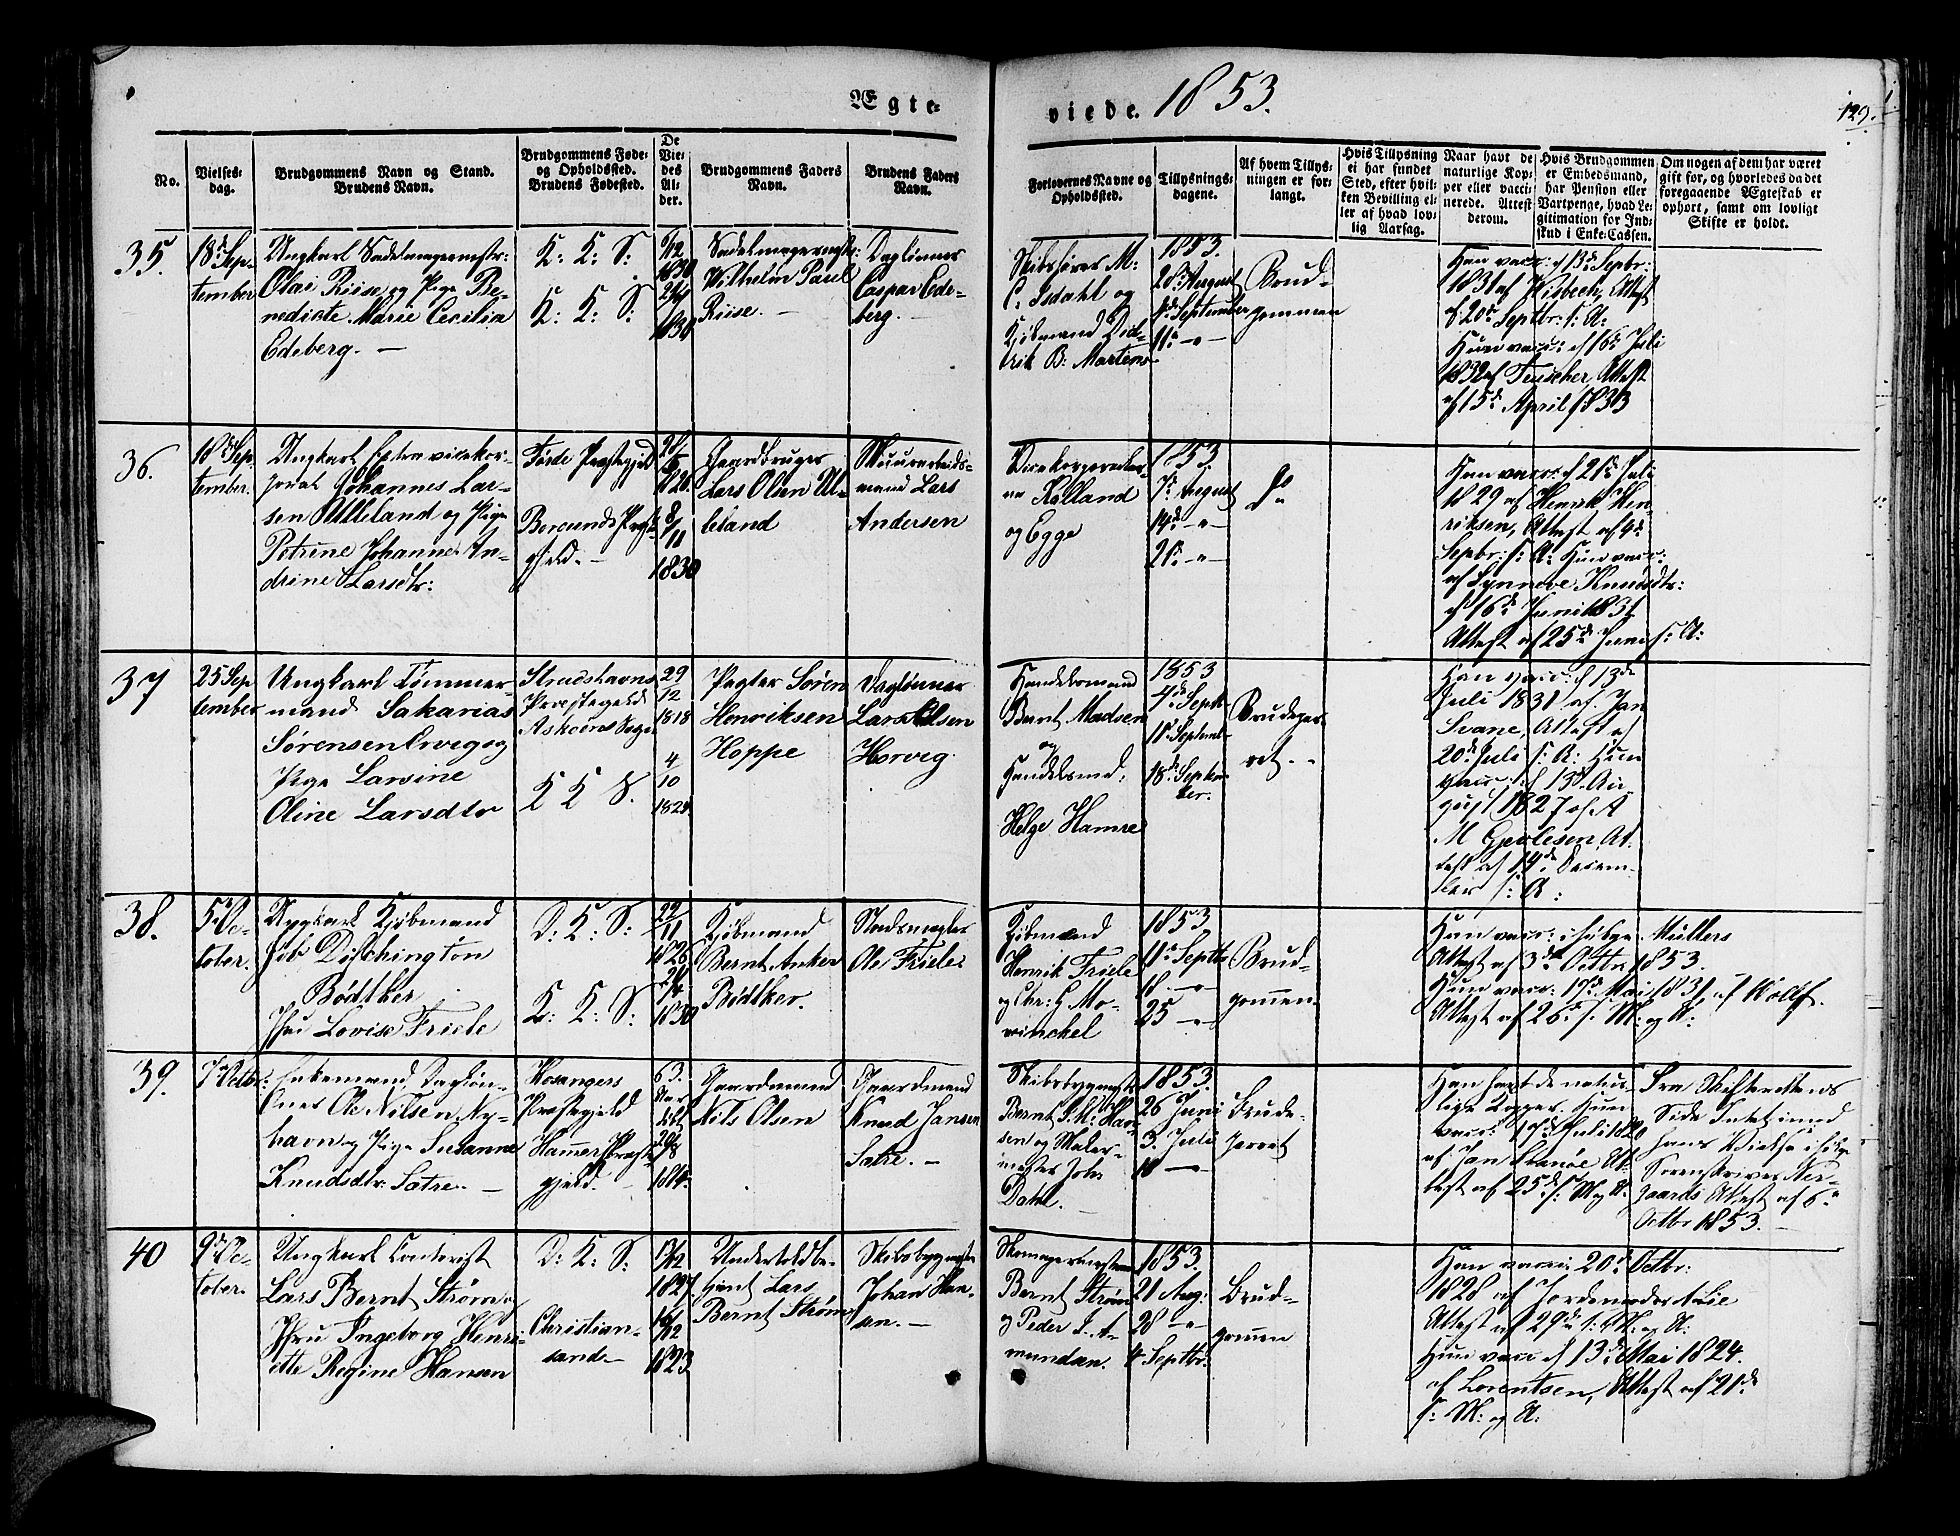 Ægte-
viede. 1853.
129.
No.
Vielses-
dag.
Brudgommens Navn og Stand.
Brudens Navn.
Brudgommens Føde-
og Opholdssted.
Brudens Fødested.
De
Vie-
des
Al-
der.
Brudgommens Faders
Navn.
Brudens Faders
Navn.
Forlovernes Navne og
Opholdssted.
Tillysnings-
dagene.
Af hvem Tillys-
ningen er for-
langt.
Hvis Tillysning
ei har fundet
Sted, efter hvil-
ken Bevilling el-
ler af hvad lov-
lig Aarsag.
Naar havt de
naturlige Kop-
per eller vacci-
nerede. Attest
derom.
Hvis Brudgommen
er Embedsmand,
har Pension eller
Vartpenge, hvad Le-
gitimation for Ind-
skud i Enke-Cassen.
Om nogen af dem har været
gift før, og hvorledes da det
foregaaende Ægteskab er
ophørt, samt om lovligt
Skifte er holdt.
35.
18d Sep-
tember
Ungkarl Sadelmagermstr:
Olai Riise og Pige Be-
nedicte Marie Cecilia
Edeberg. —
K: K: S:
K: K: S:
1830
1830
Sadelmagermstr:
Wilhelm Paul
Riise. —
Daglønner
Caspar Ede-
berg. —
Skibsfører M:
C: Isdahl og
Kjøbmand Did-
rik B: Martens
1853.
28d August
4d September
11d —"—
Brud-
gommen
Han vacc: d 13d Septbr:
1831 af Wisbech, Attest
d 20d Septbr: s: A:
Hun vacc: d 16d Juli
1832 af Teuscher, Attest
af 15d April 1833
36.
18d Sep-
tember.
Ungkarl Extra vicekor-
poral Johannes Lar-
sen Ulleland og Pige
Petrine Johanne An-
drine Larsdtr:
Førde Præstegjeld
Borgunds Præste-
gjeld. —
1826
8/11
1830
Gaardbruger
Lars Olsen Ul-
leland
Muurarbeids-
mand Lars
Andersen
Vicekorporalerne
Kolland
og Egge
1853.
7d August
14d —"—
21d —"—
do
Han vacc: d 21d Juli
1829 af Henrik Hen-
riksen, Attest af 4d
Septbr: s: A: Hun vacc:
af Synneve Knudsdtr:
d 16d Juni 1831
Attest af 25d Juni s: A:
37
25 Sep
tember
Ungkarl Tømmer-
mand Sakarias
Sørensen Orveg og
Pige Larsine
Oline Larsdtr
Strudshavns
Præstegjeld
Askøens Sogn
K K S.
29
12
1818
4
10
Pagter Søren
Henriksen
Hoppe
Daglønner
Lars Olsen
Horveg.
Handelsmand
Bernt Madsen
og
Handelsmd.
Helge Hamre
1853
4de Septb
11d Septemb-
18de Septem-
ber.
Brudepar-
ret. -
Han vacc: d 13de
Juli 1831 af Jan
Svane, Attest af
20de Juli s: A: Hun
vacc: d 13de Au-
gust 1827 af A
M Gjerlesen At-
test af 14de Decem-
ber s: A:
38.
5d Oc-
tober.
Ungkarl Kjøbmand
Job Dischington
Bødtker
Jfru Lovise Friele
D: K: S:
K: K: S:
22/11
1826
1830
Kjøbmand
Bernt Anker
Bødtker.
Stadsmægler
Ole Friele
Kjøbmænd
Henrik Friele
og Chr: G Mo-
winckel
1853
11d Septbr
18. —"—
25 —"—
Brud-
gommen.
Han vacc: ifølge Müllers
Attest af 3de Octbr 1853.
Hun vacc: 17d Mai 1831 af Rolff.
Attest af 26d s: M: og A:
39.
7d Octbr:
Enkemand Dagløn-
ner Ole Nilsen Ny-
havn og Pige Susanne
Knudsdtr: Satre. —
Hosangers
Præstegjeld
Hammer Præste-
gjeld. —
63.
1814.
Gaardmand
Nils Olsen
Gaardmand
Knud Jansen
Satre. —
Skibsbygmstr
Bernt S. M: Han-
sen og Maler-
mester Joh:
Dahl. —
1853.
26 Juni
3. Juli
10 —"—
Brude-
parret
Han havt de natur-
lige Kopper. Hun
vacc: 17de Juli 1820
af Jan Stanøe At-
test af 25d s: M og A:
Fra Skifterettens
Side Intet imod
hans Vielse ifølge
Sorenskriver Ner-
gaards Attest af 6d
Octbr 1853. —
40
9d Oc-
tober.
Ungkarl Contorist
Lars Bernt Strøm og
Jfru Ingeborg Henri-
ette Regine Hansen
D: K: S:
Christian-
sand. —
1827.
16/12
1823
Undertoldbe-
tjent Lars
Bernt Strøm
Skibsbygmester
Johan Han-
sen. —
Skomagermester
Bernt Strøm
og Peder I. A-
mundsen.
1853.
21 Aug:
28 —"—
4 Septbr:
Brud-
gommen
Han vacc: 20de Octbr:
1828 af Jordemoder Lie
Attest af 29d s: M: og A:
Hun vacc d 13de Mai 1824.
af Lorentsen, Attest af 21de
s: M: og A: